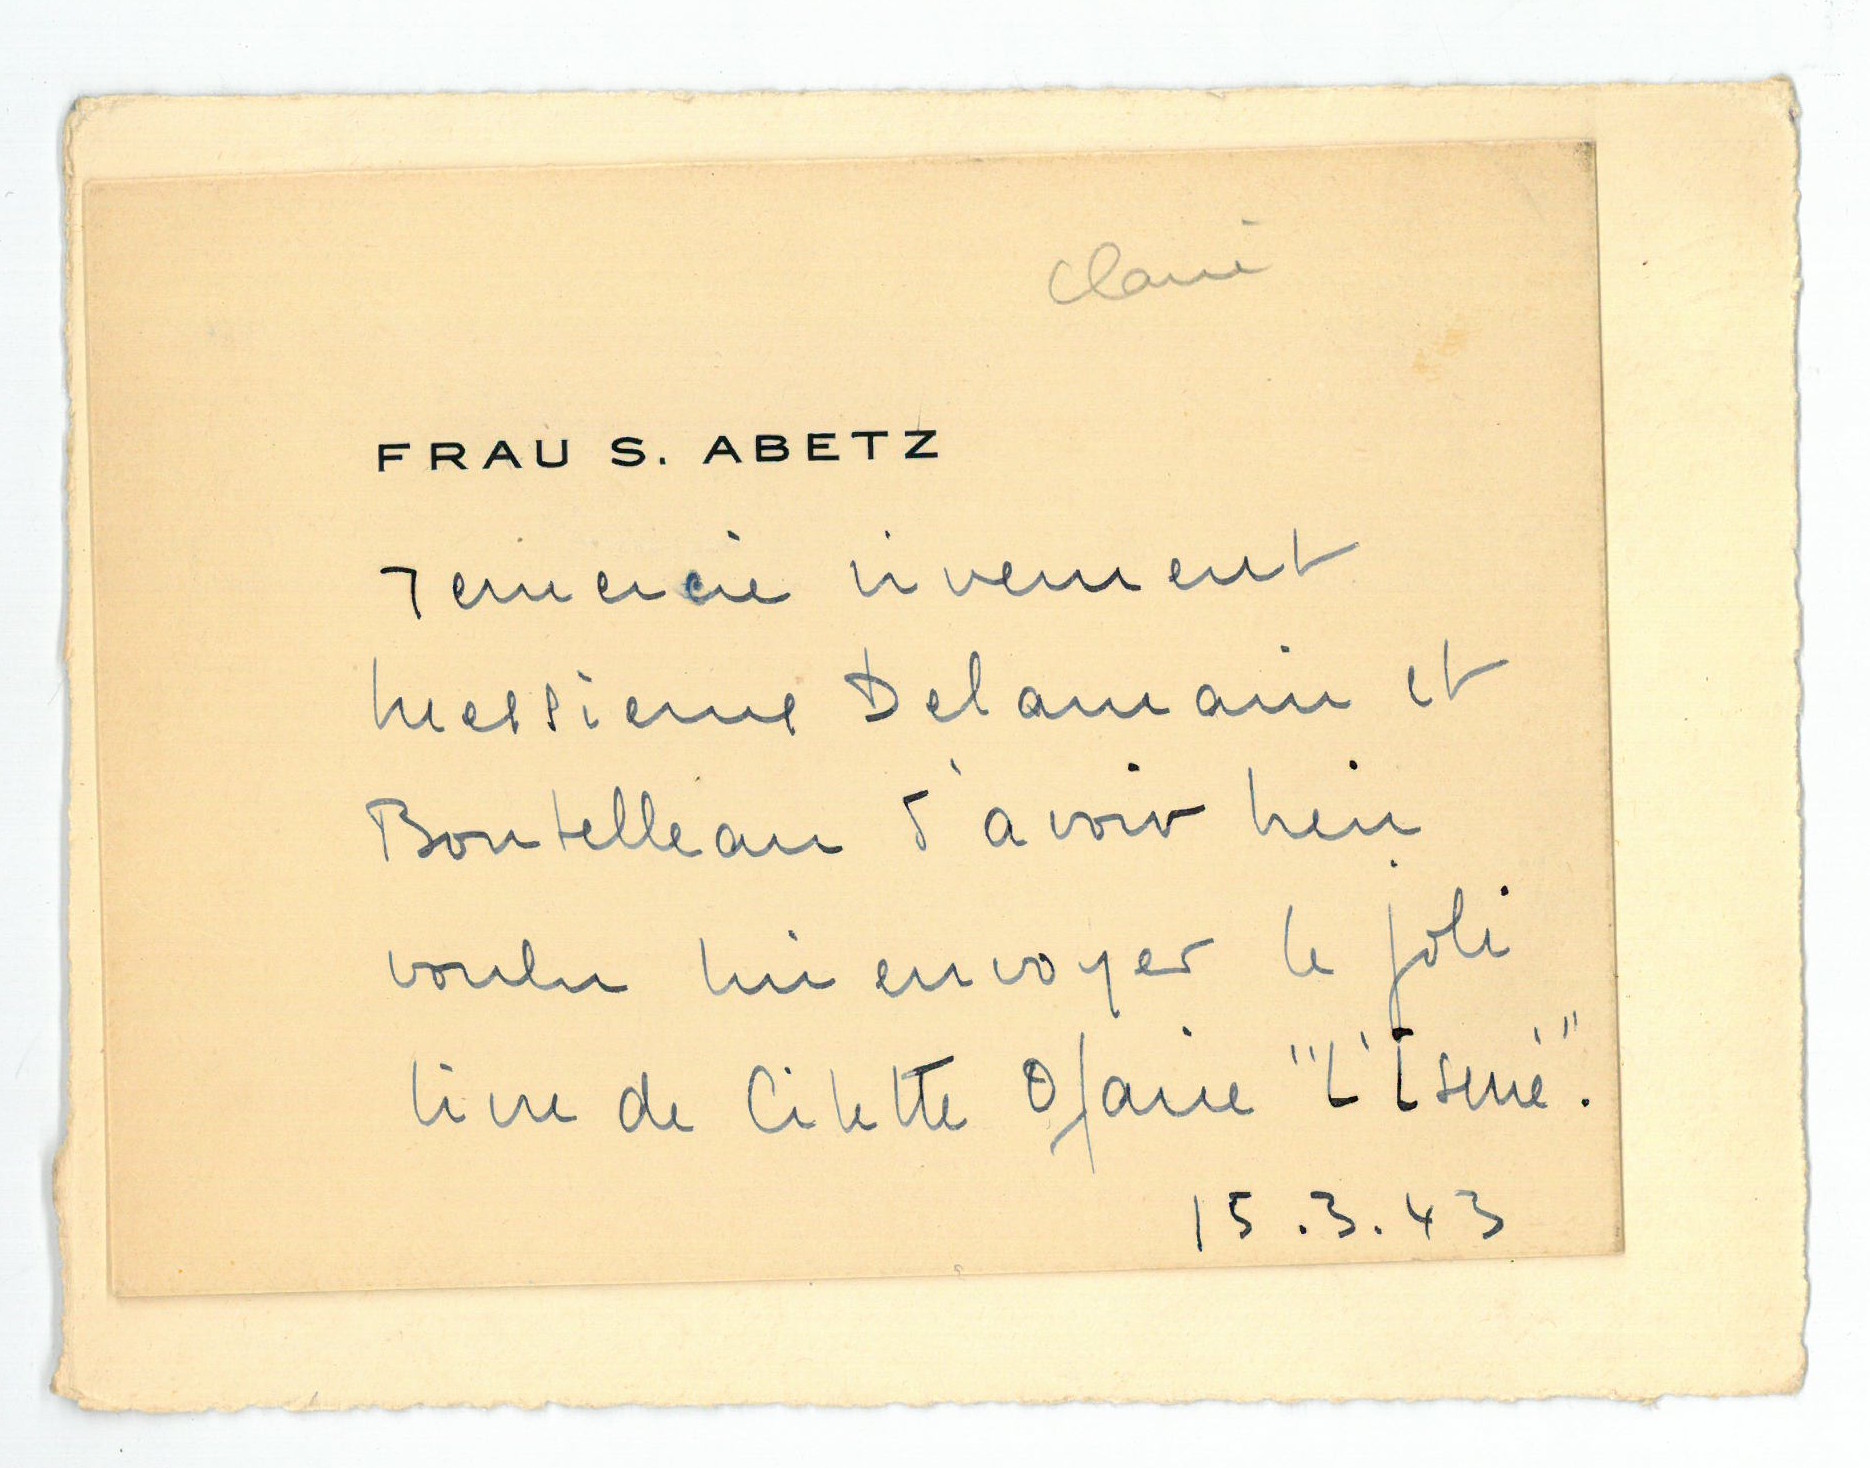 FRAU S. ABETZ
remercie vivement
Messieurs Delamain et
Boutelleau d'avoir bien
voulu lui envoyer le joli
livre de Cilette Ofaire "L'Ismé".
15.3.43